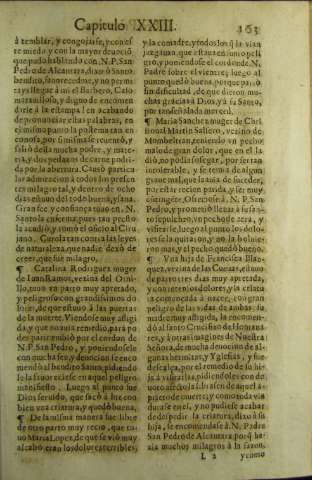 Capitulo XXIII.
163
à temblar, y congojarse, y con es
te miedo y con la mayor deuoció
que pudo hablando con N.P. San
Pedro de Alcantara, dixo ò Santo
bendito, sanò redime, y no permi
tays llegue à mi el Barbero, Caso
marauilloso, y digno de encomen
darle à la estampa! en acabando
de pronunciar estas palabras, en
el mismo punto la postema tan en
conosa, por si misma se rebentò, y
saliò della mucha podre, y mate-
ria, y dos pedaços de carne podri-
da por la abertura. Causò particu
lar admiracion à todos los presen
tes milagro tal, y dentro de ocho
dias estuuo del todo buena, y sana.
Gran fee, y confiança tuuo en N.
Santo la enferma; pues tan presto
la acudiò, y tomò el oficio al Ciru
jano. Curola tan contra las leyes
de naturaleza, que nadie dexò de
creer, que fue milagro.
¶ Catalina Rodriguez muger
de Iuan Ramos, vezina del Orni-
llo, tuuo vn parto muy apretado,
y peligroso con grandissimos do
lores, de que estuuo à las puertas
de la muerte. Viendose muy afligi
da, y que no auia remedio, para po
der parir embiò por el cordon de
N.P. San Pedro, y poniendosele
con mucha fee, y deuocion se enco
mendò al bendito Santo, pidiendo
le la fauoreciesse en aquel peligro
manifiesto. Luego al punto fue
Dios seruido, que sacò à luz con
bien vna criatura, y quedò buena.
¶ De la misma manera fue libre
de otro parto muy recio, que tu-
uo Maria Lopez, de que se viò muy
al cabo eran los dolores terribles,
y la comadre, y todos los q̃ la vian
juzgauan, que estaua en sumo peli
gro, y poniendose el cordon de N.
Padre sobre el vientre, luego al
punto quedò buena, porque pariò
sin dificultad, de que dieron mu-
chas gracias à Dios, y à su Santo,
por auerles hecho la merced.
¶ Maria Sanchez muger de Chri
stoual Martin Saliero, vezino de
Mombeltran, teniendo vn pecho
malo de gran dolor, que en el la
diò, no podia sosegar, por ser tan
intolerable, y se temia de algun
grande mal, que la auia de suceder,
por estar rezien parida, y ser muy
contingente. Ofreciose à N.P. San
Pedro, y prometiò llegar à su san
to sepulchro, vn pecho de cera, y
visitarle, luego al punto los dolo-
res se la quitaron, y no la boluie-
ron mas, y el pecho quedò bueno.
¶ Vna hija de Francisca Blaz-
quez, vezina de las Cueuas, estuuo
de parto tres dias muy apretada,
y con terribles dolores, y la criatu
ra començada à nacer, con gran
peligro de las vidas de ambas: su
madre muy afligida, la encomen-
dò al santo Crucifixo de Hontana
res, y à otras imagines de Nuestra
Señora, de mucha deuocion de al-
gunas hermitas, y Yglesias, y fue
descalça, por el remedio de su hi-
ja à visitarlas, pidiendoles con de-
uoto afecto la librassen de aquel à-
prieto de muerte, y como toda vn
dia rase en el, y no pudiese acabar
de despedir la criatura, dixo à su
hija, se encomendase à N. Padre
San Pedro de Alcantara, porq̃ ha-
zia muchos milagros en aquella
L 2
y como